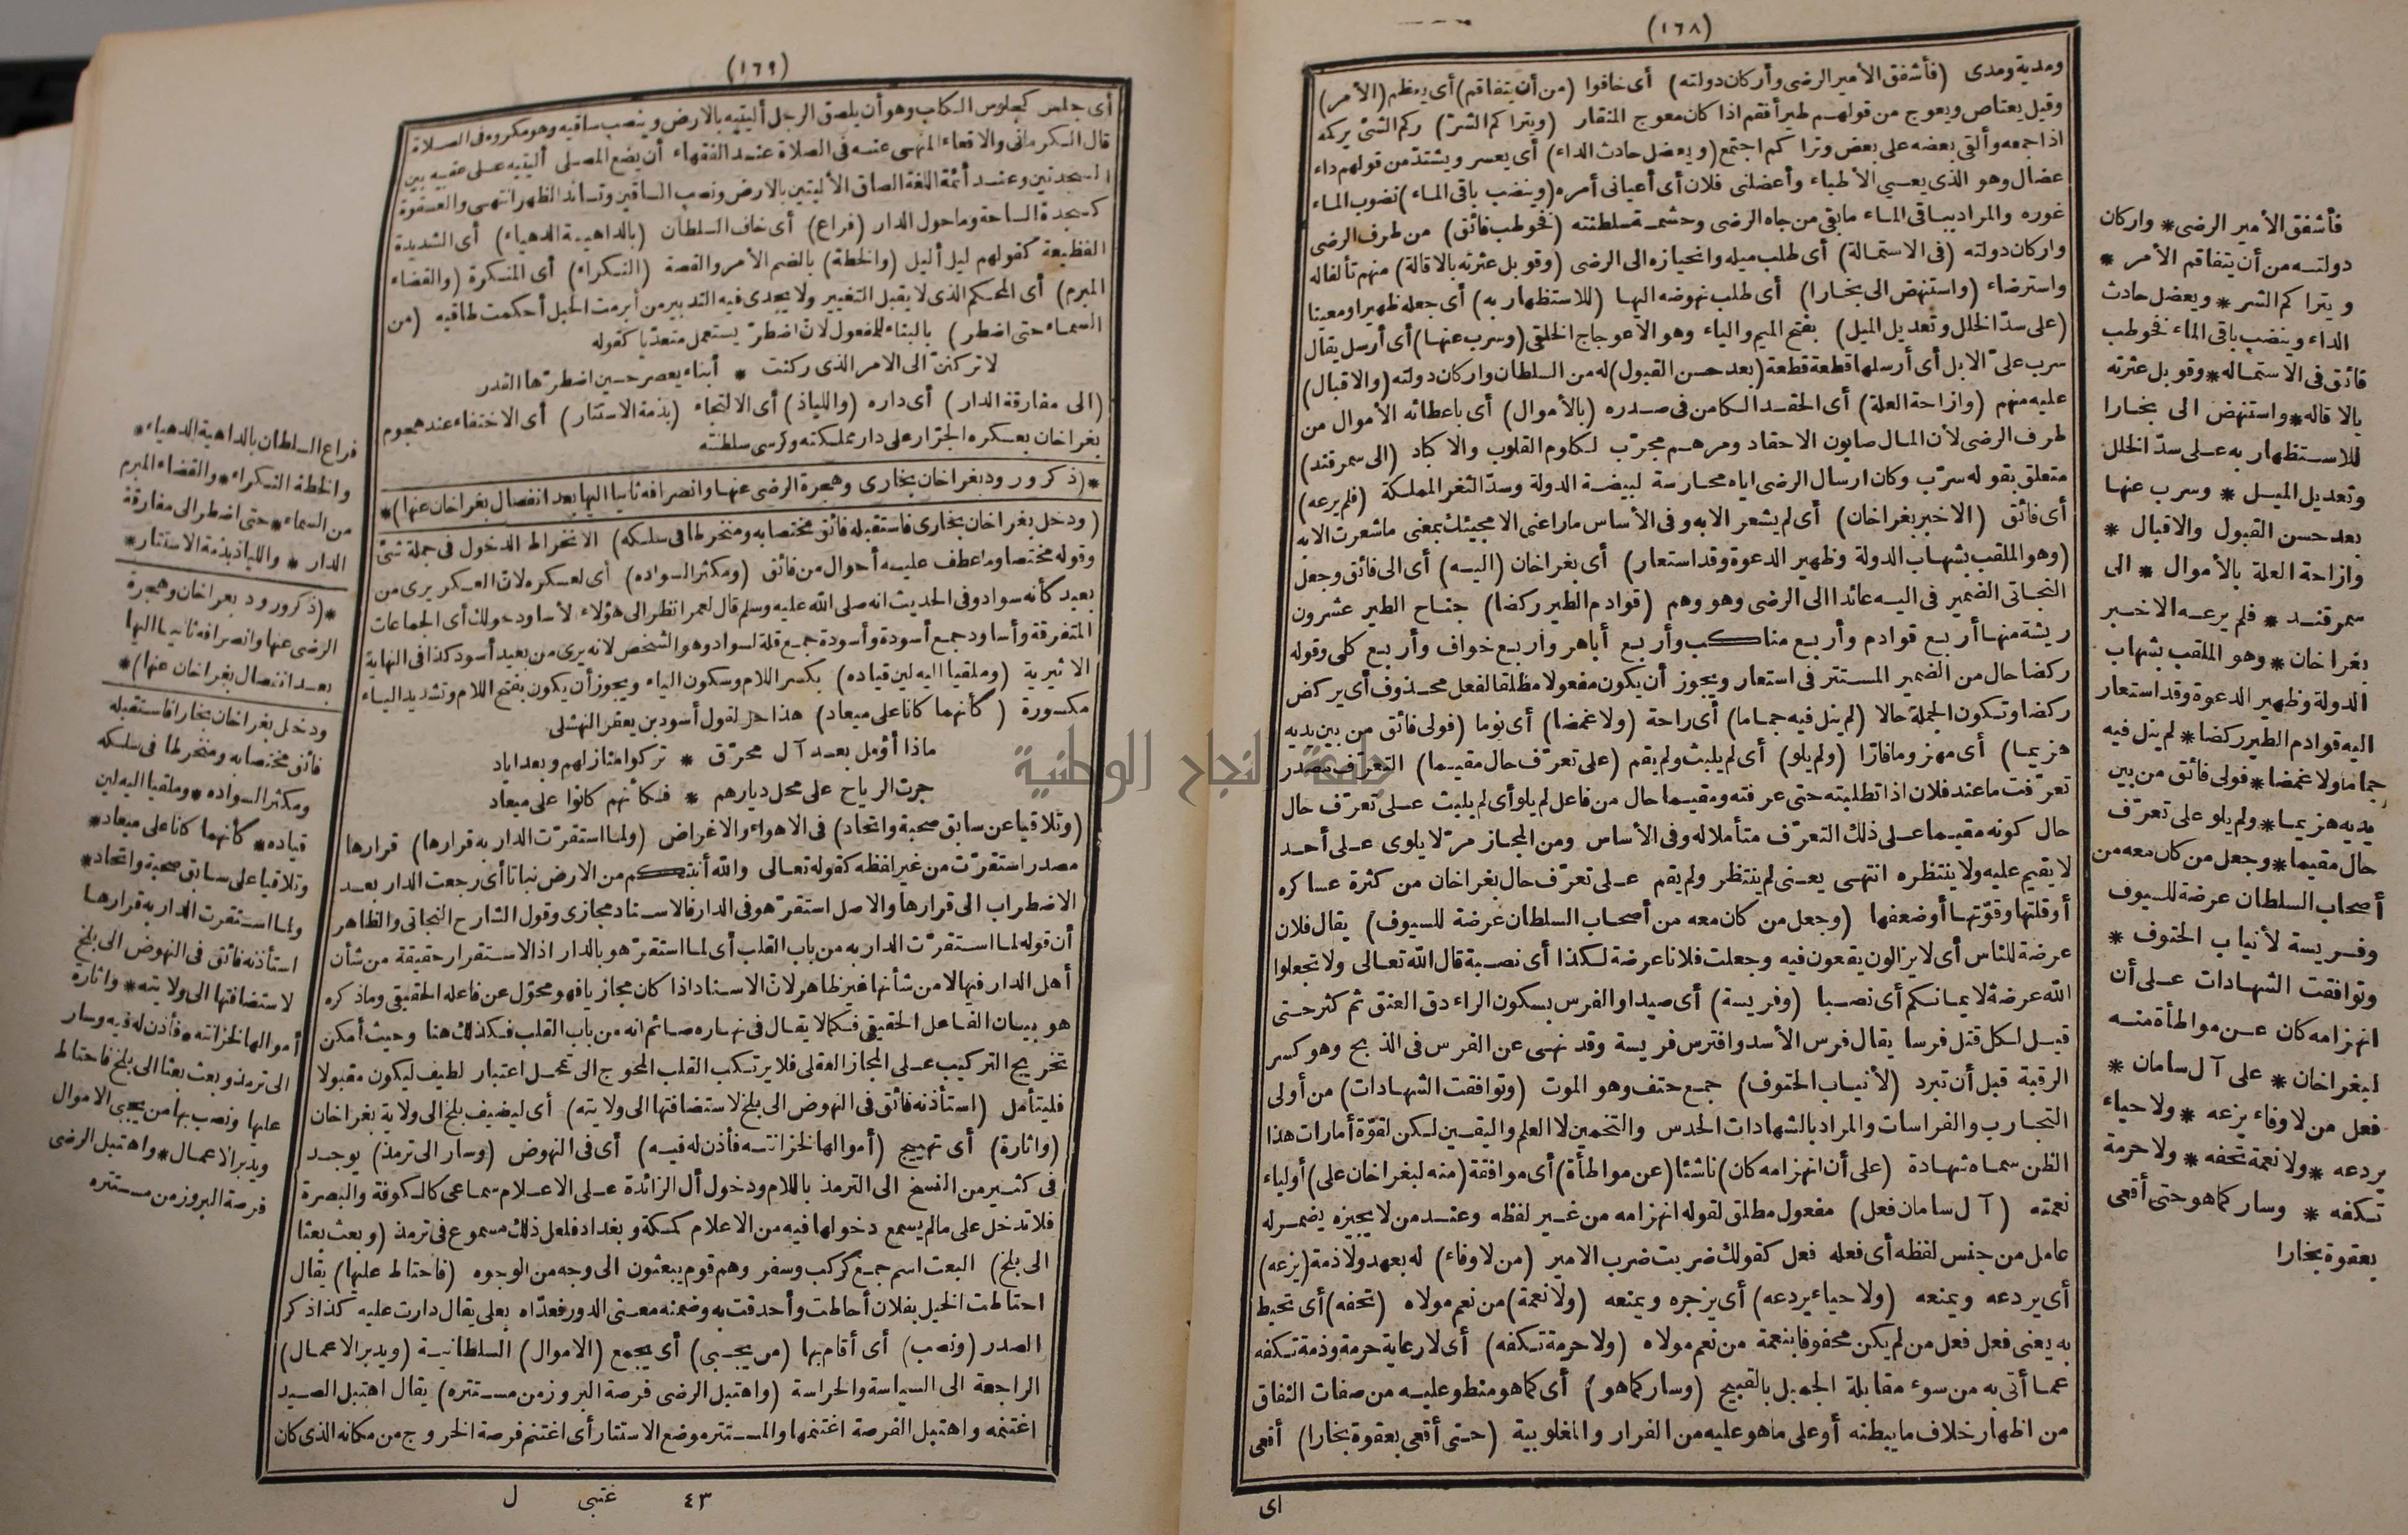 (١٦٨)
ومدية ومدى (فأشفق الأمير الرضى وأركان دولته) أى خافوا (من أن يتفاقم) أى يعظم (الأمر)
وقيل يعتاص ويعوج من قولهم طير أفقم اذا كان معوج المنقار (ويتراكم الشرّ) ركم الشئ يركمه
اذا جمعه وألقى بعضه على بعض وتراكم اجتمع (ويعضل حادث الداء) أى يعسر ويشتدّ من قولهم داء
عضال وهو الذى يعيى الأطباء وأعضلنى فلان أى أعيانى أمره (وينضب باقى الماء) نضوب الماء
غوره والمراد بباقى الماء مابقى من جاه الرضى وحشمة سلطنته (فخوطب فائق) من طرف الرضى
واركان دولته (فى الاستمالة) أى طلب ميله وانحيازه الى الرضى (وقوبل عثرته بالاقالة) منهم تألفاله
واسترضاء (واستنهض الى بخارا) أى طلب نهوضه اليها (للاستظهار به) أى جعله ظهيرا ومعينا
(على سدّ الخلل وتعديل الميل) بفتح الميم والياء وهو الاعوجاج الخلقى (وسرب عنها) أى أرسل يقال
سرب علىّ الابل أى أرسلها قطعة قطعة (بعد حسن القبول) له من السلطان واركان دولته (والاقبال)
عليه منهم (وازاحة العلة) أى الحقد الكامن فى صدره (بالأموال) أى باعطائه الأموال من
طرف الرضى لأن المال صابون الاحقاد ومرهم مجرّب لكلوم القلوب والاكباد (الى سمرقند)
متعلق بقوله سرّب وكان ارسال الرضى اياه محارسة لبيضة الدولة وسدّ الثغر المملكة (فلم يرعه)
أى فائق (الاخبر بغراخان) أى لم يشعر الابه وفى الأساس ماراعنى الا مجيئك بمعنى ماشعرت الابه
(وهو الملقب بشهاب الدولة وظهير الدعوة وقد استعار) أى بغراخان (اليه) أى الى فائق وجعل
النجاتى الضمير فى اليه عائدا الى الرضى وهو وهم (قوادم الطير ركضا) جناح الطير عشرون
ريشة منها أربع قوادم وأربع مناكب وأربع أباهر وأربع خواف وأربع كلى وقوله
ركضا حال من الضمير المستتر فى استعار ويجوز أن يكون مفعولا مطلقا لفعل محذوف أى يركض
ركضا وتكون الجملة حالا (لم ينل فيه جماما) أى راحة (ولا غمضا) أى نوما (فولى فائق من بين يديه
هزيما) أى مهزوما فارّا (ولم يلو) أى لم يلبث ولم يقم (على تعرّف حال مقيما) التعرّف مصدر
تعرّفت ماعند فلان اذا تطلبته حتى عرفته ومقيما حال من فاعل لم يلو أى لم يلبث على تعرّف حال
حال كونه مقيما على ذلك التعرّف متأملا له وفى الأساس ومن المجاز مرّ لا يلوى على أحد
لا يقيم عليه ولا ينتظره انتهى يعنى لم ينتظر ولم يقم على تعرّف حال بغراخان من كثرة عساكره
أوقلتها وقوّتها أو ضعفها (وجعل من كان معه من أصحاب السلطان عرضة للسيوف) يقال فلان
عرضة للناس أى لا يزالون يقعون فيه وجعلت فلانا عرضة لكذا أى نصبة قال الله تعالى ولا تجعلوا
الله عرضة لا يمانكم أى نصبا (وفريسة) أى صيدا والفرس بسكون الراء دق العنق ثم كثر حتى
قيل لكل قتل فرسا يقال فرس الأسد وافترس فريسة وقد نهى عن الفرس فى الذبح وهو كسر
الرقبة قبل أن تبرد (لأنياب الحتوف) جمع حتف وهو الموت (وتوافقت الشهادات) من أولى
التجارب والفراسات والمراد بالشهادات الحدس والتخمين لا العلم واليقين لكن لقوّة أمارات هذا
الظن سماه شهادة (على أن انهزامه كان) ناشئا (عن مواطأة) أى موافقة (منه لبغراخان على) أولياء
نعمته (آل سامان فعل) مفعول مطلق لقوله انهزامه من غير لفظه وعند من لا يجيزه يضمر له
عامل من جنس لفظه أى فعله فعل كقولك ضربت ضرب الامير (من لا وفاء) له بعهد ولا ذمة (يزعه)
أى يردعه ويمنعه (ولا حياء يردعه) أى يزجره ويمنعه (ولا نعمة) من نعم مولاه (تحفه) أى تحيط
به يعنى فعل فعل من لم يكن محفوفا بنعمة من نعم مولاه (ولا حرمة تكفه) أى لا رعاية حرمة وذمة تكفه
عما أتى به من سوء مقابلة الجميل بالقبيح (وسار كما هو) أى كما هو منطو عليه من صفات النفاق
من اظهار خلاف ما يبطنه أو على ما هو عليه من الفرار والمغلوبية (حتى أقعى بعقوة بخارا) أقعى
اى
فأشفق الأمير الرضى * واركان
دولته من أن يتفاقم الأمر *
ويتراكم الشر * ويعضل حادث
الداء وينضب باقى الماء فخوطب
فائق فى الاستماله * وقوبل عثرته
بالاقاله * واستنهض الى بخارا
للاستظهار به على سدّ الخلل
وتعديل الميل * وسرب عنها
بعد حسن القبول والاقبال *
وازاحة العلة بالأموال * الى
سمرقند * فلم يرعه الاخبر
بغراخان * وهو الملقب بشهاب
الدولة وظهير الدعوة وقد استعار
اليه قوادم الطير ركضا * لم ينل فيه
جماما ولا غمضا * فولى فائق من بين
يديه هزيما * ولم يلو على تعرّف
حال مقيما * وجعل من كان معه من
أصحاب السلطان عرضة للسيوف
وفريسة لأنياب الحتوف *
وتوافقت الشهادات على أن
انهزامه كان عن مواطأة منه
لبغراخان * على آل سامان *
فعل من لا وفاء يزعه * ولا حياء
يردعه * ولا نعمة تحفه * ولا حرمة
تكفه * وسار كما هو حتى أقعى
بعقوة بخارا
(١٦٩)
أى جلس كجلوس الكلب وهو أن يلصق الرجل أليتيه بالارض وينصب ساقيه وهو مكروه فى الصلاة
قال الكرمانى والاقعاء المنهى عنه فى الصلاة عند الفقهاء أن يضع المصلى أليتيه على عقبيه بين
السجدتين وعند أئمة اللغة الصاق الأليتين بالارض ونصب الساقين وتساند الظهر انتهى والعقوة
كسجدة الساحة وما حول الدار (فراع) أى خاف السلطان (بالداهية الدهياء) أى الشديدة
الفظيعة كقولهم ليل أليل (والخطة) بالضم الأمر والقصة (النكراء) أى المنكرة (والقضاء
المبرم) أى المحكم الذى لا يقبل التغيير ولا يجدى فيه التدبير من أبرمت الحبل أحكمت طاقيه (من
السماء حتى اضطر) بالبناء للمفعول لانّ اضطرّ يستعمل متعدّيا كقوله
لا تركننّ الى الامر الذى ركنت * أبناء يعصر حين اضطرّها القدر
(الى مفارقة الدار) أى داره (واللياذ) أى الالتجاء (بذمة الاستتار) أى الاختفاء عند هجوم
بغراخان بعسكره الجرّار على دار مملكته وكرسى سلطنته
*(ذكر ورود بغراخان بخارى وهجرة الرضى عنها وانصرافه ثانيا اليها بعد انفصال بغراخان عنها)*
(ودخل بغراخان بخارى فاستقبله فائق مختصا به ومنخرطا فى سلكه) الانخراط الدخول فى جملة شئ
وقوله مختصا وما عطف عليه أحوال من فائق (ومكثر السواده) أى لعسكره لانّ العسكر يرى من
بعيد كأنه سواد وفى الحديث انه صلى الله عليه وسلم قال لعمر انظر الى هؤلاء لأساود حولك أى الجماعات
المتفرقة وأساود جمع أسودة وأسودة جمع قلة لسواد وهو الشخص لانه يرى من بعيد أسود كذا فى النهاية
الاثيرية (وملقيا اليه لين قياده) بكسر اللام وسكون الياء ويجوز أن يكون بفتح اللام وتشديد الياء
مكسورة (كأنهما كانا على ميعاد) هذا حل لقول أسود بن يعفر النهشلى
ماذا أؤمل بعد آل محرّق * تركوا منازلهم وبعد اياد
جرت الرياح على محل ديارهم * فكأنهم كانوا على ميعاد
(وتلاقيا عن سابق صحبة واتحاد) فى الاهواء والاغراض (ولما استقرّت الدار به قرارها) قرارها
مصدر استقرّت من غير لفظه كقوله تعالى والله أنبتكم من الارض نباتا أى رجعت الدار بعد
الاضطراب الى قرارها والاصل استقرّ هو فى الدار فالاسناد مجازى وقول الشارح النجاتى والظاهر
أن قوله لما استقرّت الدار به من باب القلب أى لما استقرّ هو بالدار اذ الاستقرار حقيقة من شأن
أهل الدار فيها لا من شأنها غير ظاهر لانّ الاسناد اذا كان مجازيا فهو محوّل عن فاعله الحقيقى وما ذكره
هو بيان الفاعل الحقيقى فكما لا يقال فى نهاره صائم انه من باب القلب فكذلك هنا وحيث أمكن
تخريج التركيب على المجاز العقلى فلا يرتكب القلب المحوج الى تمحل اعتبار لطيف ليكون مقبولا
فليتأمل (استأذنه فائق فى النهوض الى بلخ لاستضافتها الى ولايته) أى ليضيف بلخ الى ولاية بغراخان
(واثارة) أى تهييج (أموالها لخزانته فأذن له فيه) أى فى النهوض (وسار الى ترمذ) يوجد
فى كثير من النسخ الى الترمذ باللام ودخول أل الزائدة على الاعلام سماعى كالكوفة والبصرة
فلا تدخل على ما لم يسمع دخولها فيه من الاعلام كمكة وبغداد فلعل ذلك مسموع فى ترمذ (وبعث بعثا
الى بلخ) البعث اسم جمع كركب وسفر وهم قوم يبعثون الى وجه من الوجوه (فاحتاط عليها) يقال
احتاطت الخيل بفلان أحاطت وأحدقت به وضمنه معنى الدور فعدّاه بعلى يقال دارت عليه كذا ذكر
الصدر (ونصب) أى أقام بها (من يجبى) أى يجمع (الاموال) السلطانية (ويدبر الاعمال)
الراجعة الى السياسة والحراسة (واهتبل الرضى فرصة البروز من مستتره) يقال اهتبل الصيد
اغتنمه واهتبل الفرصة اغتنمها والمستتر موضع الاستتار أى اغتنم فرصة الخروج من مكانه الذى كان
٤٣ عتبى ل
فراع السلطان بالداهية الدهياء *
والخطة النكراء * والقضاء المبرم
من السماء * حتى اضطر الى مفارقة
الدار * واللياذ بذمة الاستتار *
*(ذكر ورود بغراخان وهجرة
الرضى عنها وانصرافه ثانيا اليها
بعد انفصال بغراخان عنها)*
ودخل بغراخان بخارا فاستقبله
فائق مختصا به ومنخرطا فى سلكه
ومكثر السواده * وملقيا اليه لين
قياده * كأنهما كانا على ميعاد *
وتلاقيا على سابق صحبة واتحاد *
ولما استقرت الدار به قرارها
استأذنه فائق فى النهوض الى بلخ
لاستضافتها الى ولايته * واثارة
أموالها لخزانته * فأذن له فيه وسار
الى ترمذ وبعث بعثا الى بلخ فاحتاط
عليها ونصب بها من يجبى الاموال
ويدبر الاعمال * واهتبل الرضى
فرصة البروز من مستتره
جامعة النجاح الوطنية